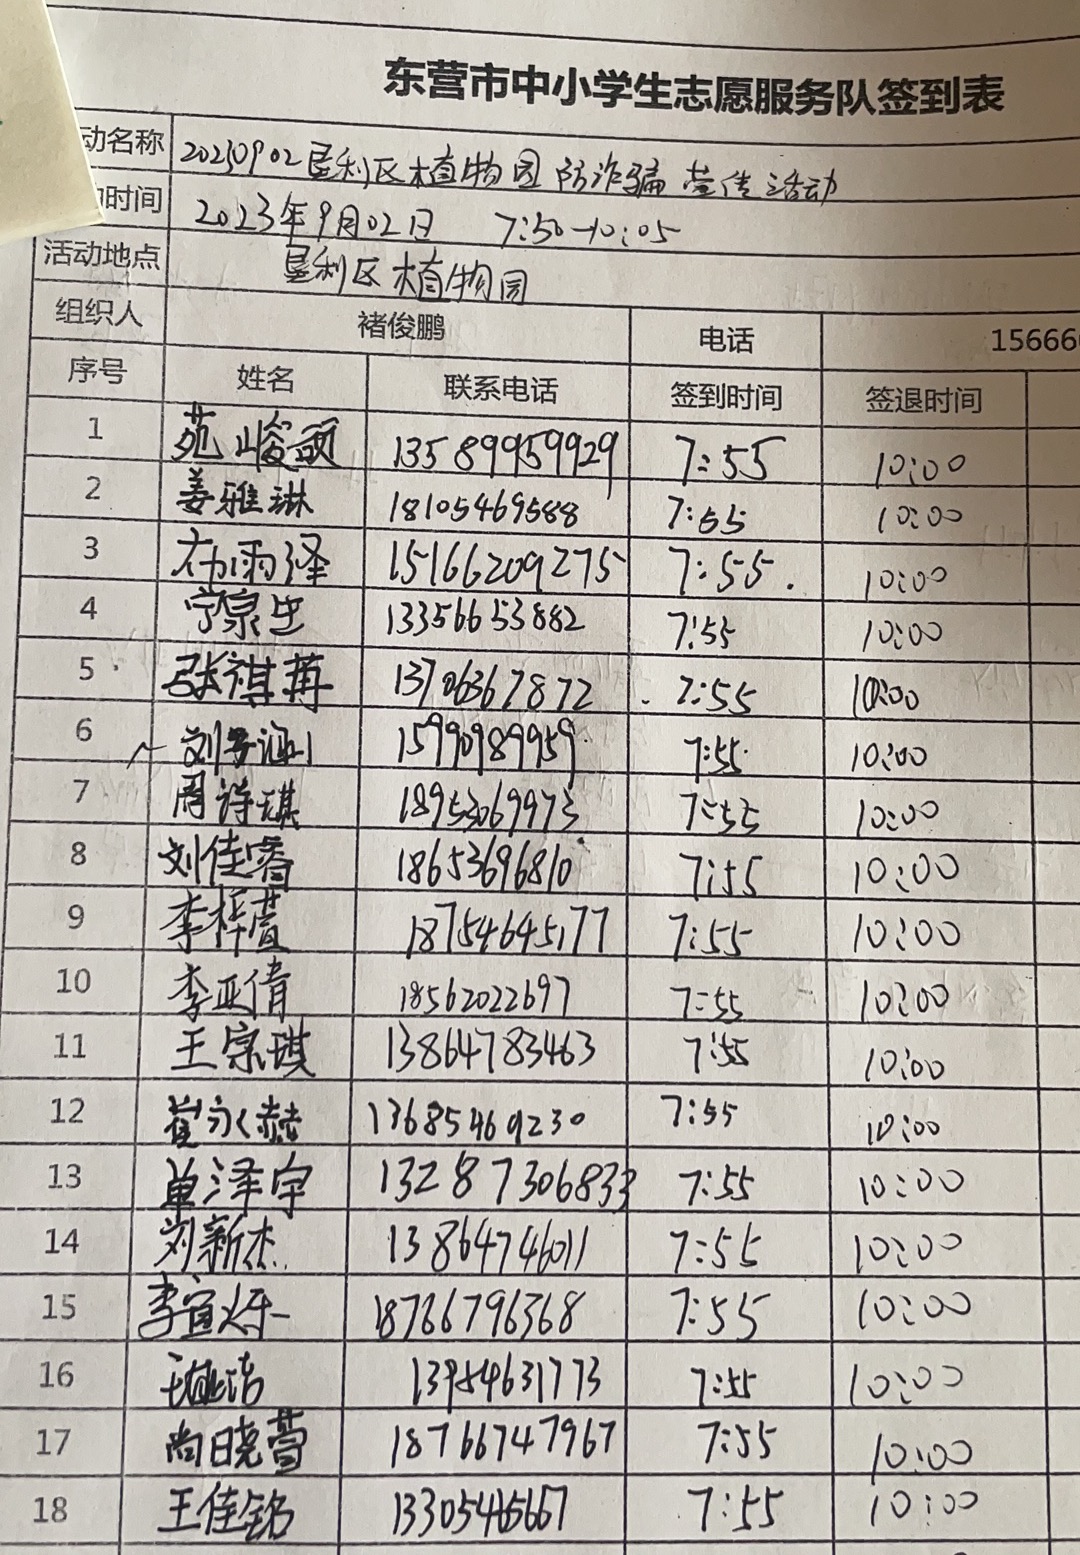 东营市中小学生志愿服务队签到表
动名称 20230902垦利区植物园防诈骗宣传活动
时间 2023年9月02日 7:50-10:05
活动地点 垦利区植物园
组织人 褚俊鹏 电话 15666
序号 姓名 联系电话 签到时间 签退时间
1 苑峻硕 13589959929 7:55 10:00
2 姜雅琳 18105469588 7:55 10:00
3 雨泽 15166209275 7:55. 10:00
4 宁泉忠 13356653882 7:55 10:00
5 张祺苒 13706367872 7:55 10:00
6 刘子涵 15990989959 7:55 10:00
7 周诗琪 18953069973 7:55 10:00
8 刘佳睿 18653696810 7:55 10:00
9 李梓萱 18754645177 7:55 10:00
10 李亚倩 18562022697 7:55 10:00
11 王宗琪 13864783463 7:55 10:00
12 崔永赫 13685469230 7:55 10:00
13 单泽宇 13287306833 7:55 10:00
14 刘新杰 13864746011 7:55 10:00
15 李宜烁 18766796368 7:55 10:00
16 13954631773 7:55 10:00
17 尚晓萱 18766747967 7:55 10:00
18 王佳铭 13305465667 7:55 10:00